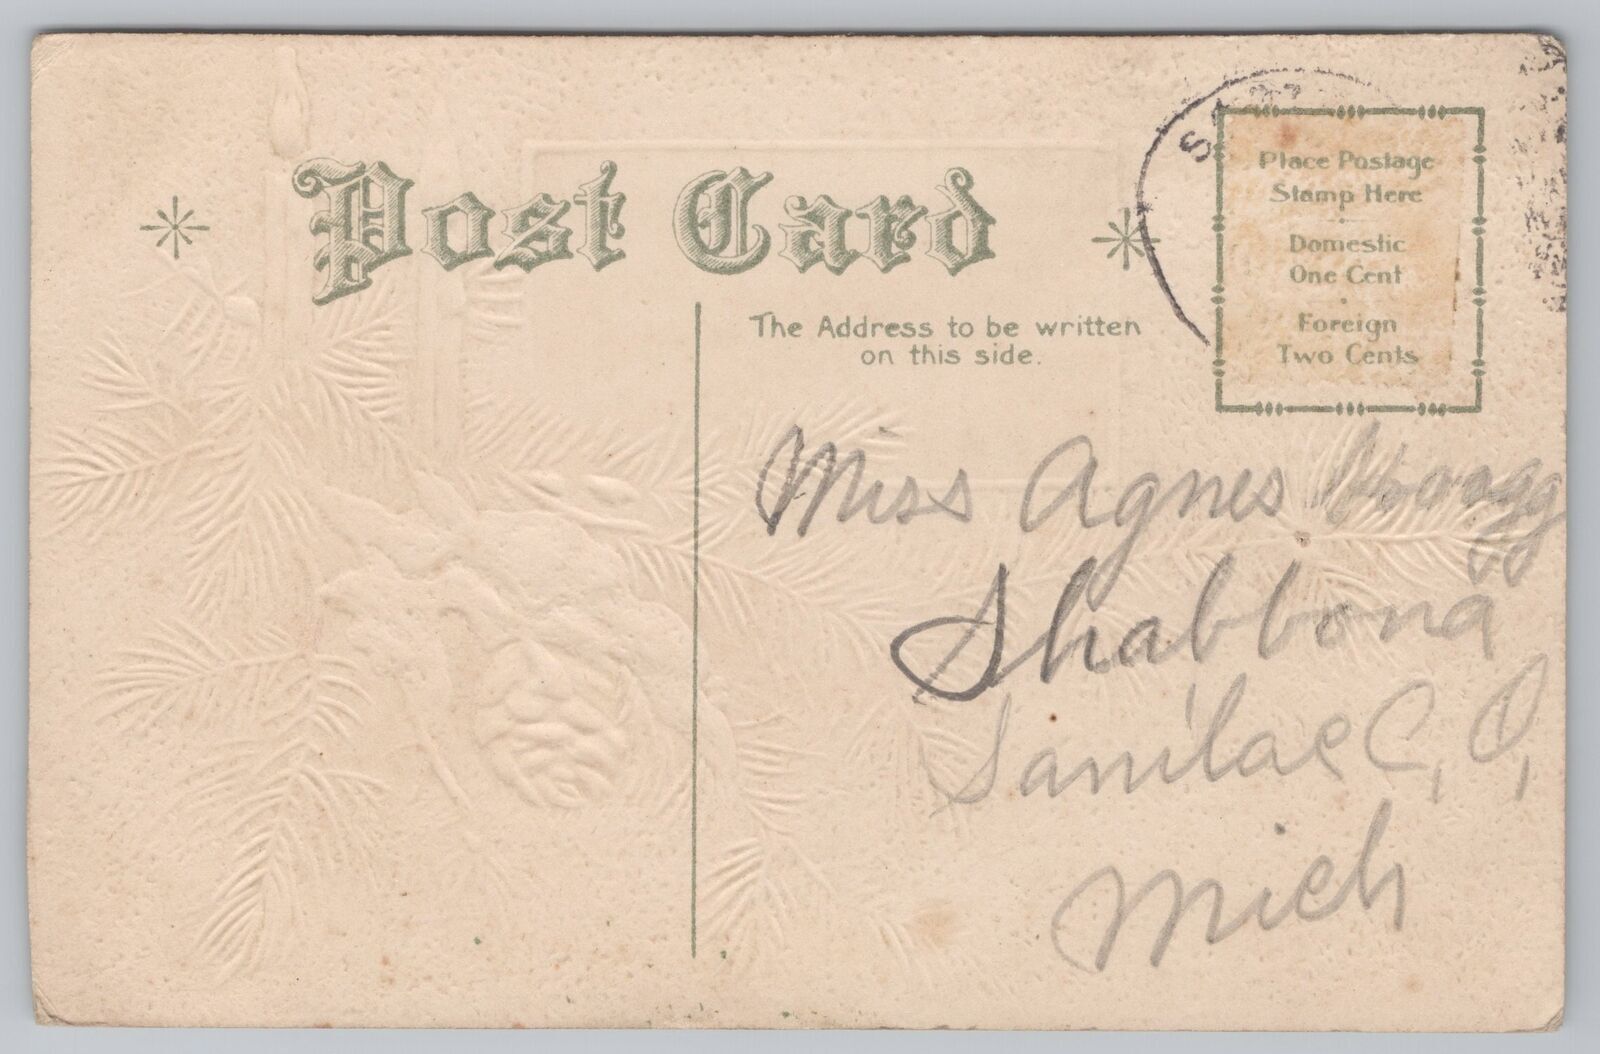 Post Card
The Address to be written
on this side.
Place Postage
Stamp Here
Domestic
One Cent
Foreign
Two Cents
Miss Agnes
Shabbona
Sanilac C, O,
Mich